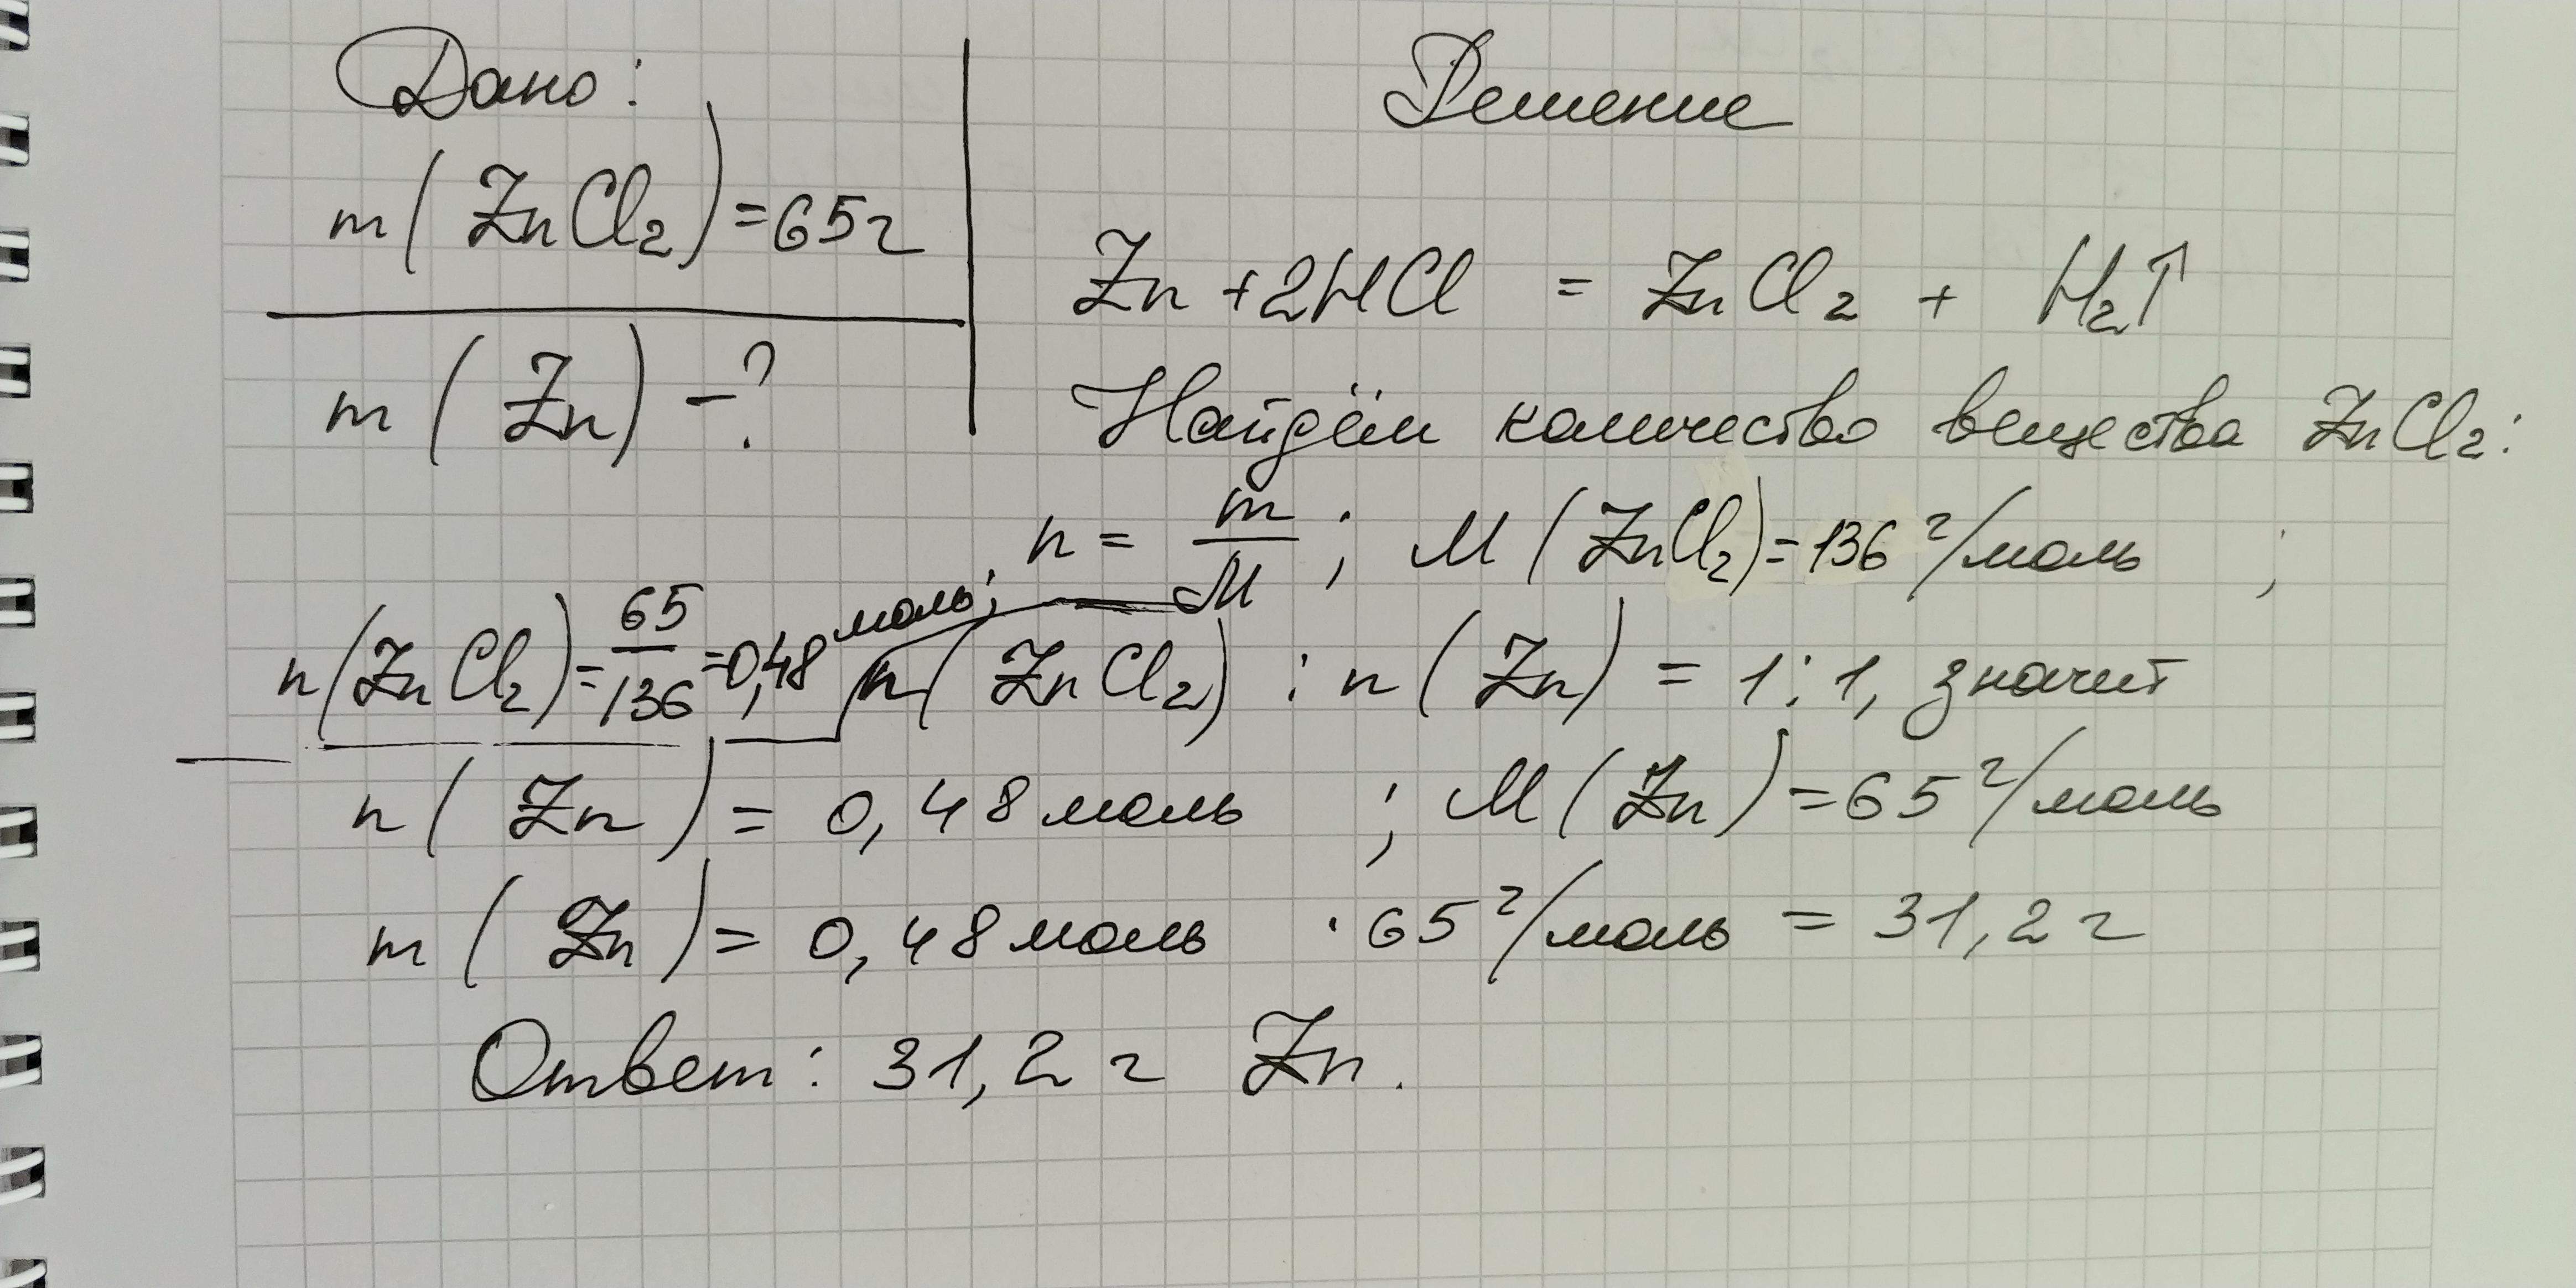 Дано:
m(ZnCl₂)=65г
m(Zn)-?
Решение
Zn+2HCl = ZnCl₂ + H₂↑
Найдём количество вещества ZnCl₂:
n = m/M; M(ZnCl₂)=136 г/моль ;
n(ZnCl₂)=65/136=0,48 моль;
n(ZnCl₂):n(Zn)=1:1, значит
n(Zn)=0,48 моль ; M(Zn)=65 г/моль
m(Zn)=0,48 моль · 65 г/моль = 31,2 г
Ответ: 31,2 г Zn.